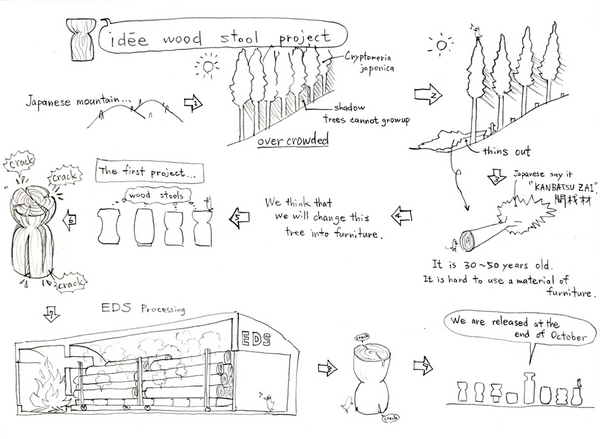 idée wood stool project
Japanese mountain...
1
Cryptomeria
japonica
shadow
trees cannot growup
over crowded
2
thins out
3
Japanese say it
"KANBATSU ZAI"
間伐材
It is 30~50 years old.
It is hard to use a material of
furniture.
4
We think that
we will change this
tree into furniture.
5
The first project...
wood stools
6
crack
crack
crack
7
EDS Processing
EDS
8
crack
crack
9
We are released at the
end of October